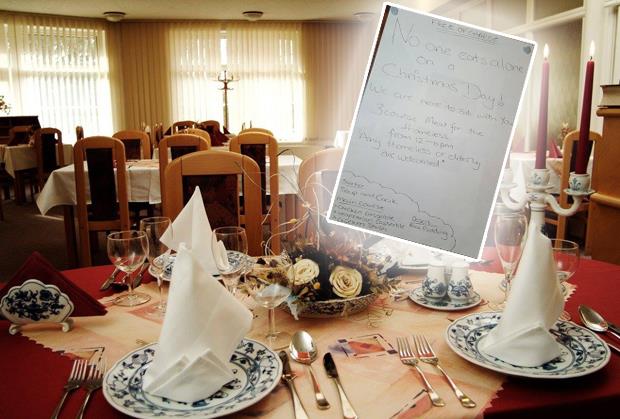 FREE OF CHARGE
No one eats alone
on a
Christmas Day!
We are here to sit with you
3 course Meal for the
Homeless
from 12-6pm
"Any Homeless or elderly
are welcomed"
Starter
Soup and
Main Course
Chicken
Vegetarian
Desert
Rice Pudding